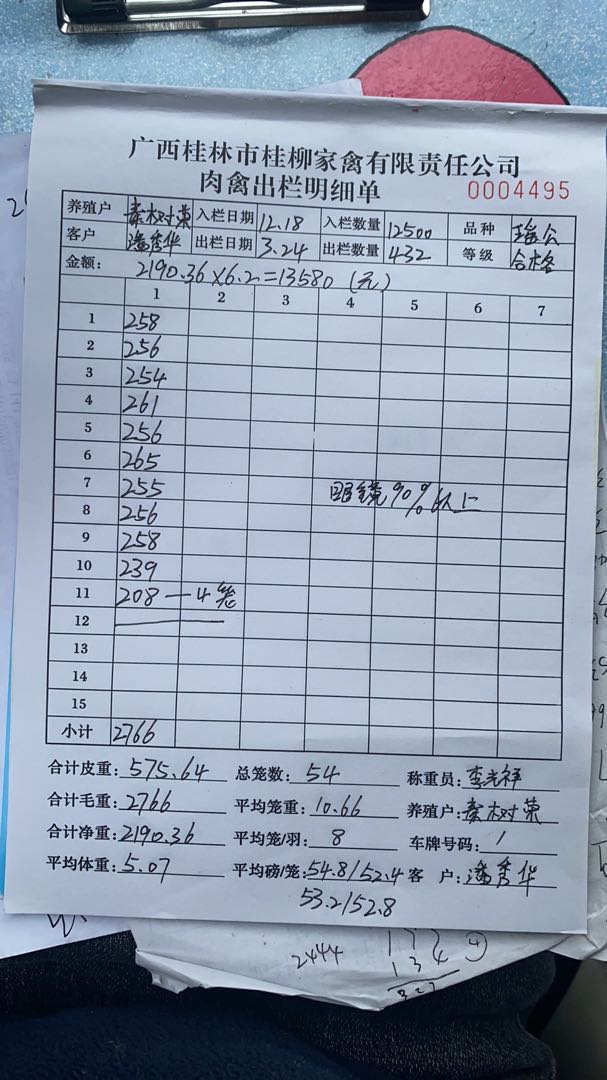 广西桂林市桂柳家禽有限责任公司
肉禽出栏明细单 0004495
养殖户 秦树荣 入栏日期 12.18 入栏数量 12500 品种 瑶公
客户 潘秀华 出栏日期 3.24 出栏数量 432 等级 合格
金额: 2190.36×6.2=13580 (元)
1 2 3 4 5 6 7
1 258
2 256
3 254
4 261
5 256
6 265
7 255 眼镜90%以上
8 256
9 258
10 239
11 208 — 4笼
12
13
14
15
小计 2766
合计皮重: 575.64 总笼数: 54 称重员: 李光祥
合计毛重: 2766 平均笼重: 10.66 养殖户: 秦树荣
合计净重: 2190.36 平均笼/羽: 8 车牌号码: /
平均体重: 5.07 平均磅/笼: 54.8/52.4 客 户: 潘秀华
53.2/52.8
2444
134